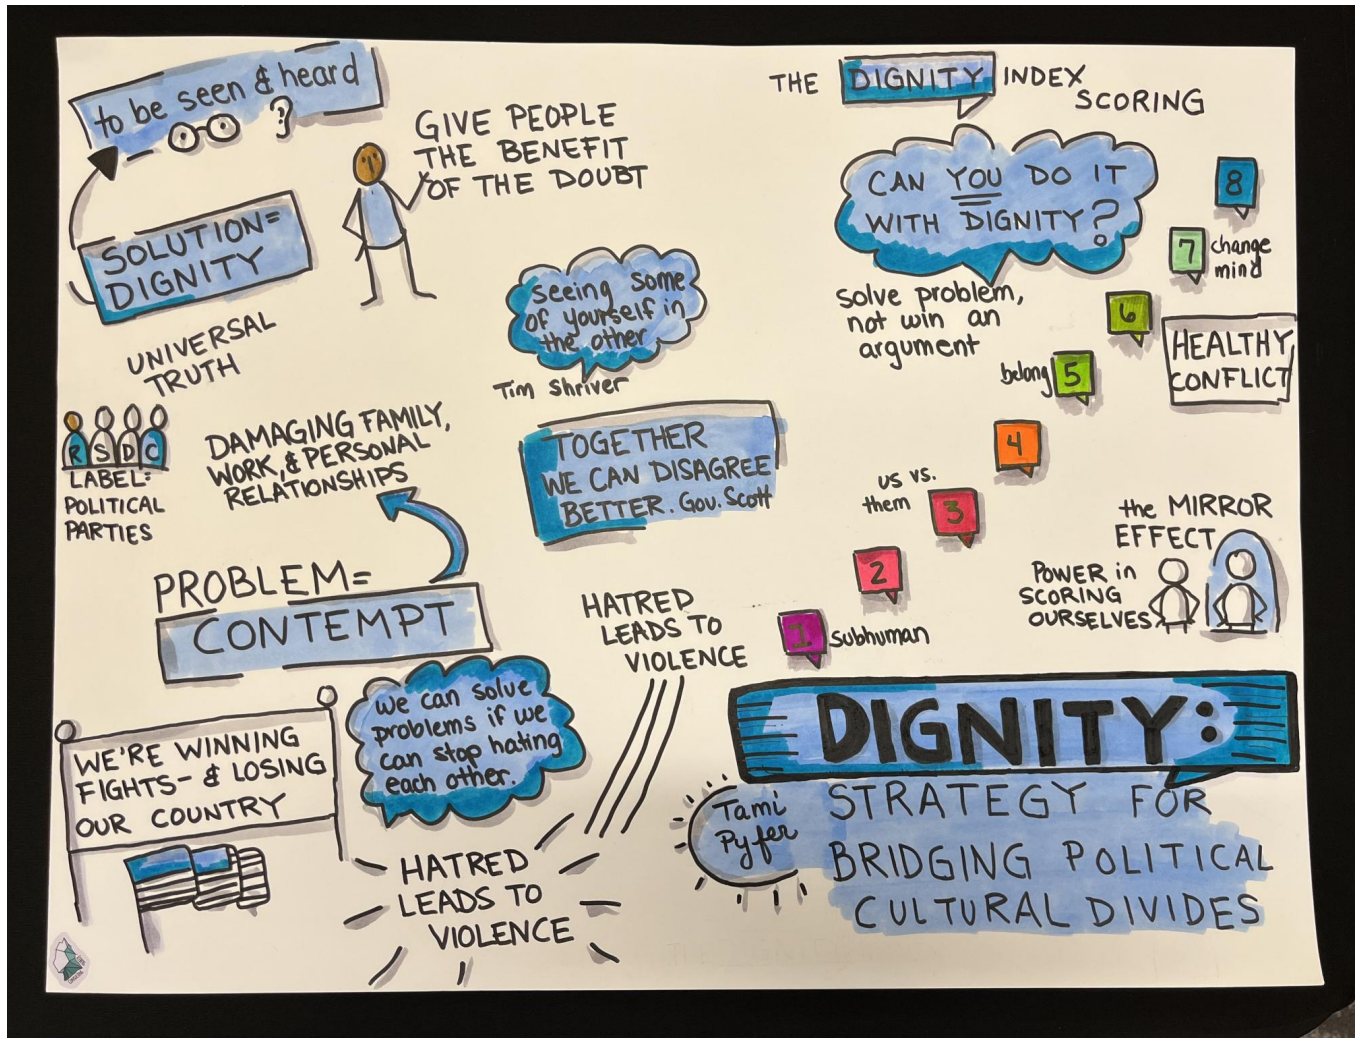 to be seen & heard
SOLUTION=
DIGNITY
UNIVERSAL
TRUTH
GIVE PEOPLE
THE BENEFIT
OF THE DOUBT
seeing some
of yourself in
the other
Tim Shriver
R S D C
LABEL:
POLITICAL
PARTIES
DAMAGING FAMILY,
WORK, & PERSONAL
RELATIONSHIPS
TOGETHER
WE CAN DISAGREE
BETTER. Gov. Scott
PROBLEM=
CONTEMPT
WE'RE WINNING
FIGHTS- & LOSING
OUR COUNTRY
we can solve
problems if we
can stop hating
each other.
HATRED
LEADS TO
VIOLENCE
HATRED
LEADS TO
VIOLENCE
THE DIGNITY INDEX
SCORING
CAN YOU DO IT
WITH DIGNITY?
solve problem,
not win an
argument
8
7 change
mind
6
HEALTHY
CONFLICT
belong 5
4
us vs.
them 3
2
1 subhuman
the MIRROR
EFFECT
POWER in
SCORING
OURSELVES
DIGNITY:
Tami
Pyfer
STRATEGY FOR
BRIDGING POLITICAL
CULTURAL DIVIDES